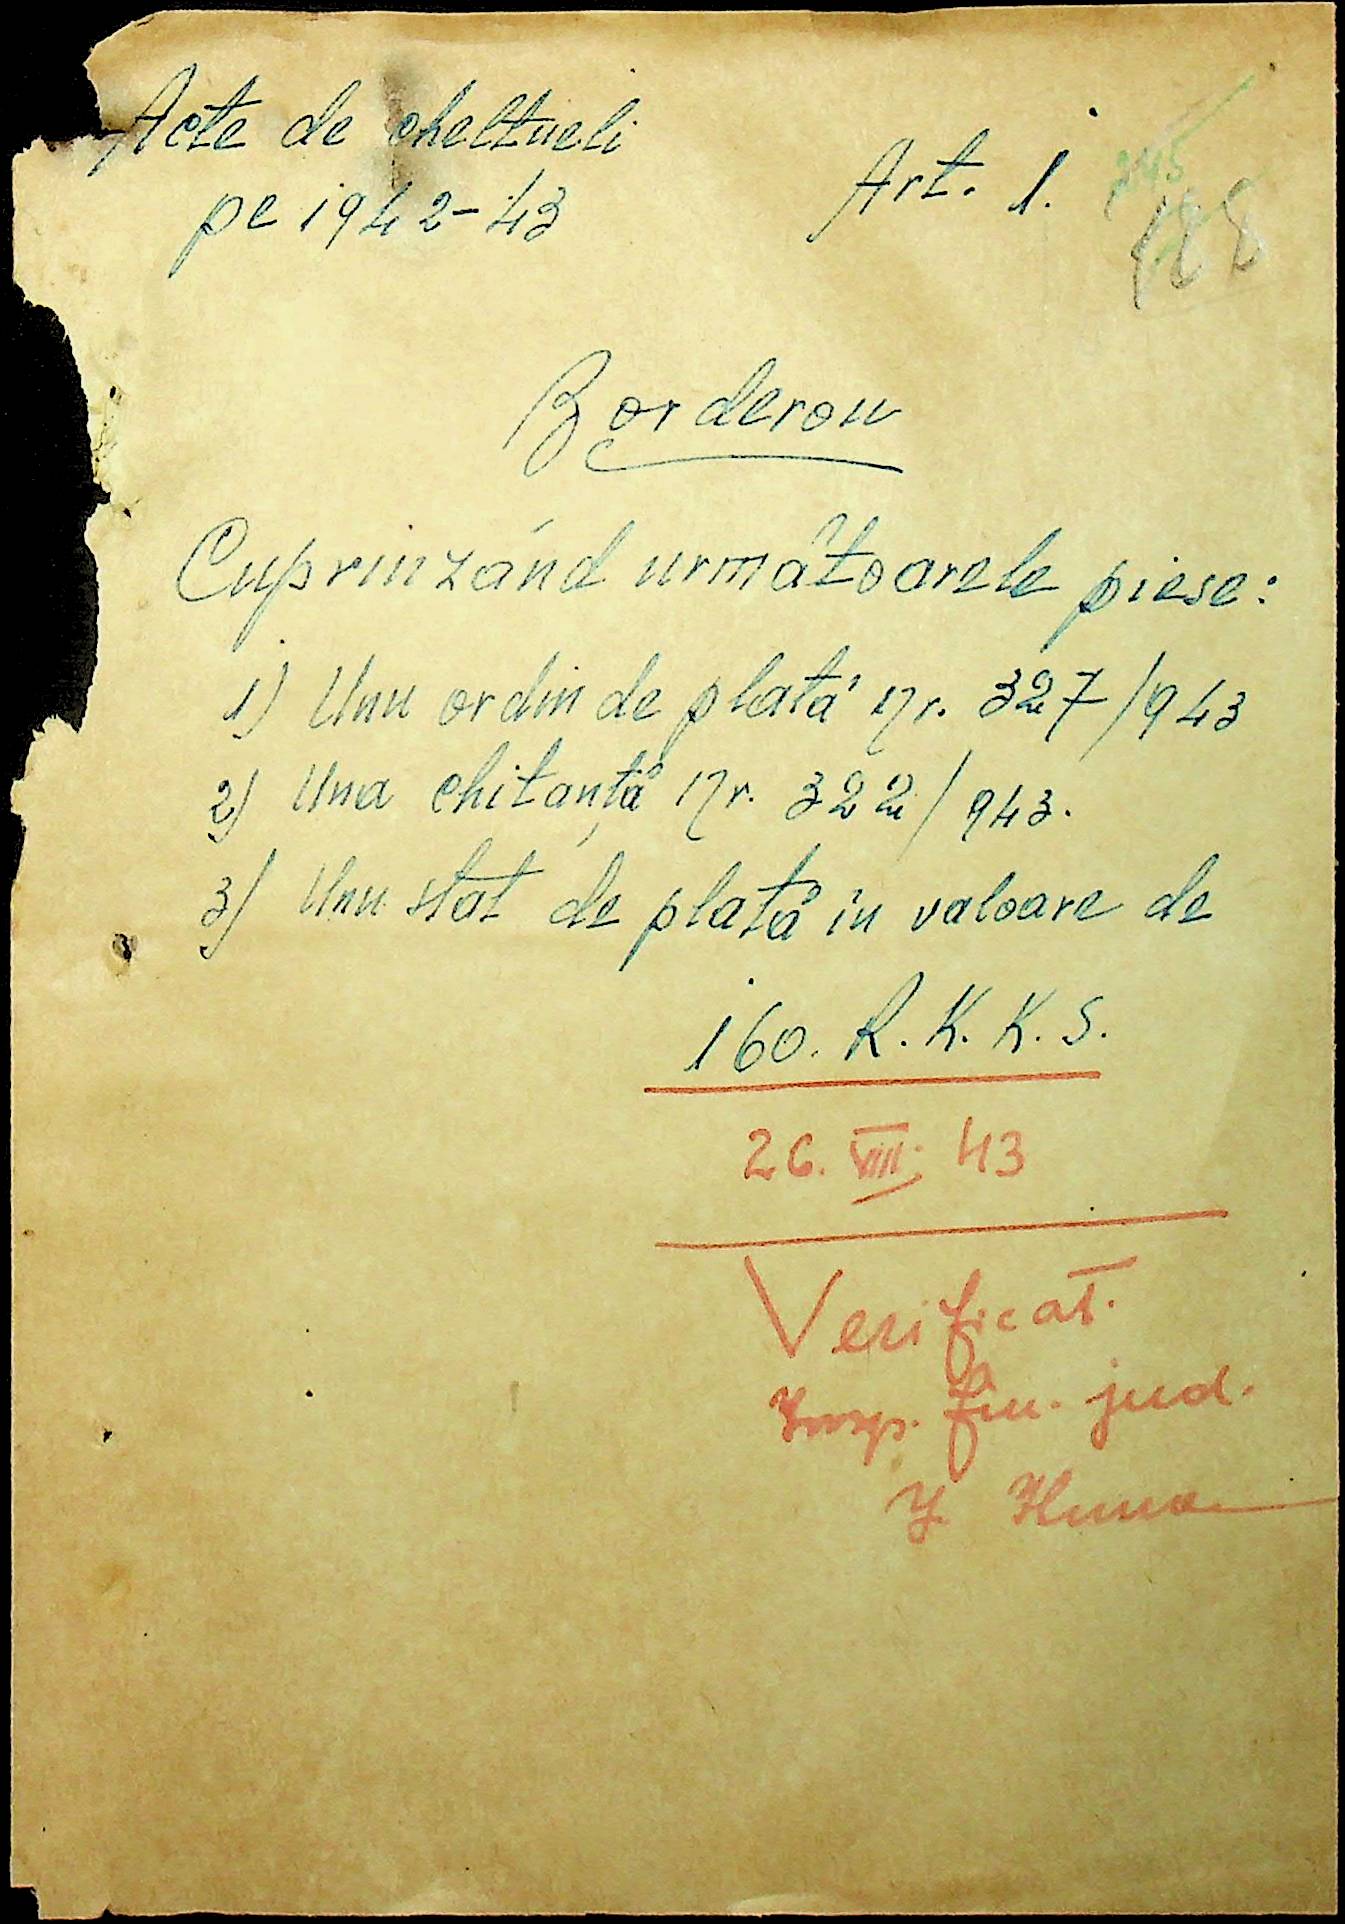 Acte de cheltueli
pe 1942-43
Art. 1.
245
188
Borderou
Cuprinzând următoarele piese:
1) Unu ordin de plată Nr. 327/943
2) Una chitanță Nr. 322/943.
3) Unu stat de plată în valoare de
160. R. K. K. S.
26. VIII. 43
Verificat.
Insp. fin. jud.